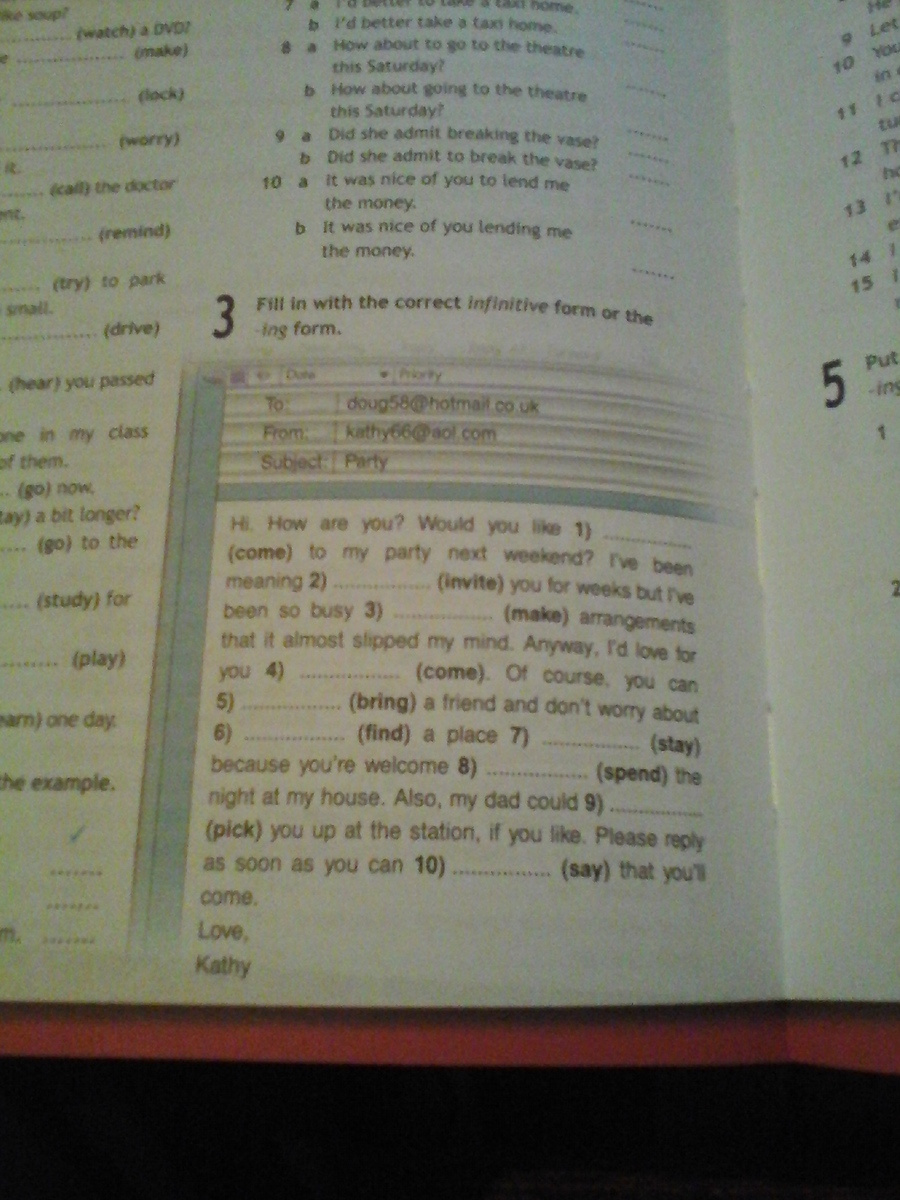 ike soup?
.................. (watch) a DVD?
e .................. (make)
.................. (lock)
.................. (worry)
it.
....... (call) the doctor
ent.
.................. (remind)
...... (try) to park
small.
.................. (drive)
. (hear) you passed
one in my class
of them.
.. (go) now.
tay) a bit longer?
.... (go) to the
..... (study) for
......... (play)
earn) one day.
the example.
✓
.......
.......
m. .......
7 a I'd better to take a taxi home. .......
b I'd better take a taxi home. .......
8 a How about to go to the theatre
this Saturday? .......
b How about going to the theatre
this Saturday? .......
9 a Did she admit breaking the vase? .......
b Did she admit to break the vase? .......
10 a It was nice of you to lend me
the money. .......
b It was nice of you lending me
the money. .......
3 Fill in with the correct infinitive form or the
-ing form.
Date Priority
To: doug58@hotmail.co.uk
From: kathy66@aol.com
Subject: Party
Hi. How are you? Would you like 1) ..................
(come) to my party next weekend? I've been
meaning 2) .................. (invite) you for weeks but I've
been so busy 3) .................. (make) arrangements
that it almost slipped my mind. Anyway, I'd love for
you 4) .................. (come). Of course, you can
5) .................. (bring) a friend and don't worry about
6) .................. (find) a place 7) .................. (stay)
because you're welcome 8) .................. (spend) the
night at my house. Also, my dad could 9) ..................
(pick) you up at the station, if you like. Please reply
as soon as you can 10) .................. (say) that you'll
come.
Love,
Kathy
He
9 Let
10 You
in
11 I c
tu
12 Th
ho
13 I'
e
14 I
15 I
5 Put
-ing
1
2